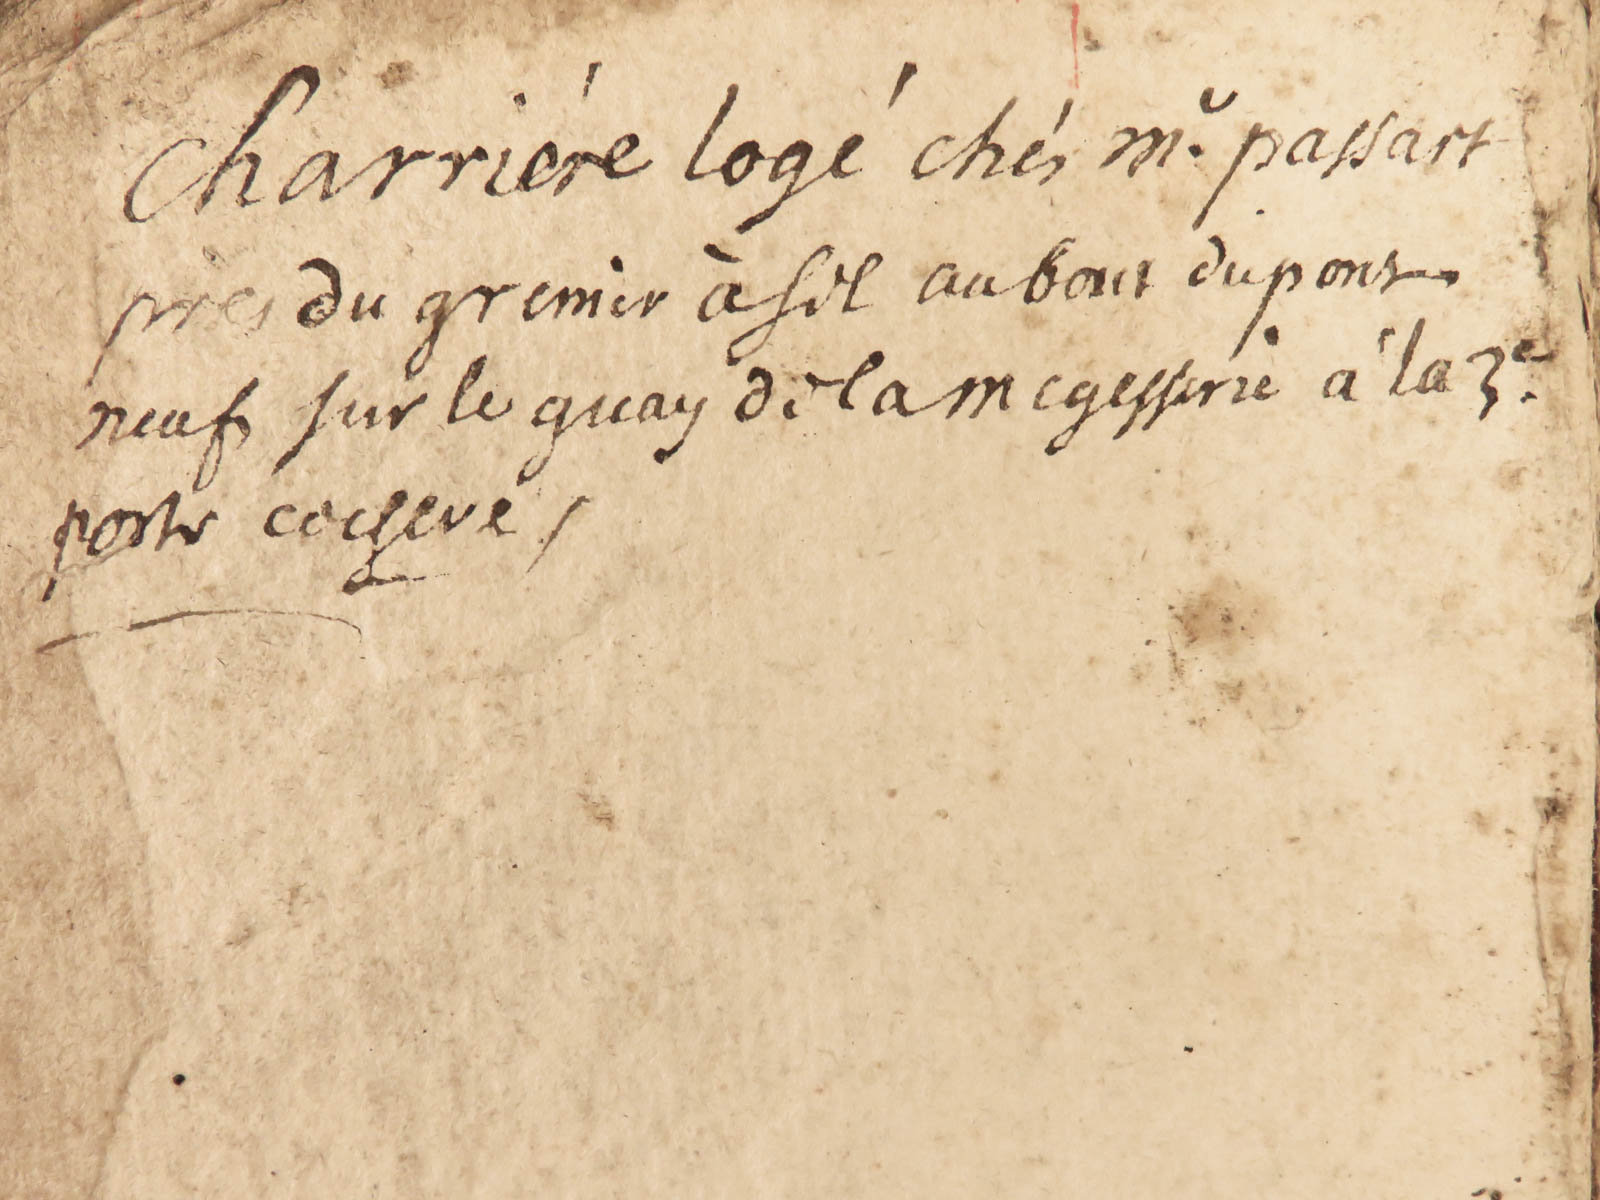 Charriére logé chés Mr. passart
prés du grenier à sel au bout du pont
neuf sur le quay de la megesserie à la 3e.
porte cochere /